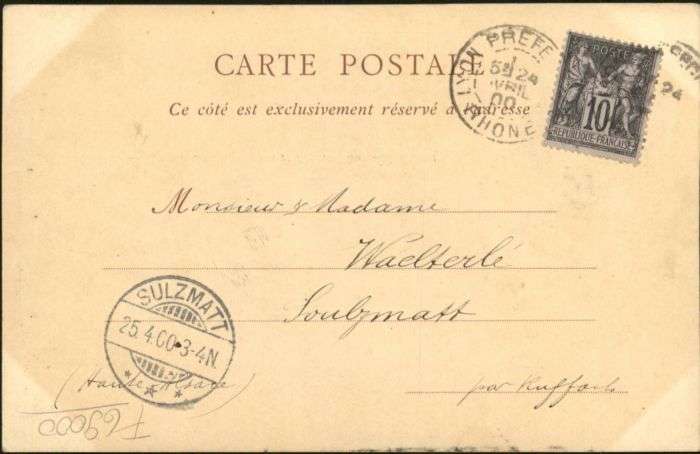 CARTE POSTALE
Ce côté est exclusivement réservé à l'adresse
LYON PRÉFE
5E 24
AVRIL
00
RHONE
POSTE
10
REPUBLIQUE FRANÇAISE
24
Monsieur & Madame
Waelterlé
Soulzmatt
SULZMATT
25.4.00.3-4N.
(Haute Alsace)
par Ruffach
F69000